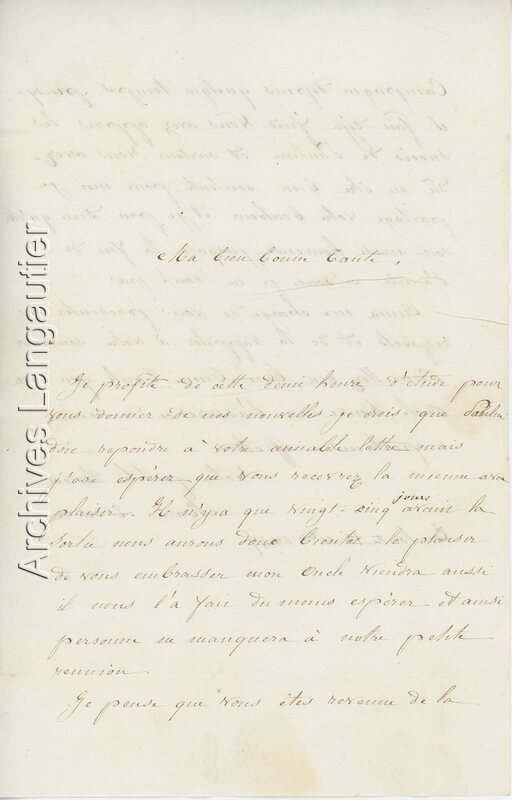 Ma bien bonne tante,
Je profite de cette demi heure d'étude pour
vous donner de nos nouvelles je crois que Paulin
doit repondre à votre aimable lettre mais
j'ose espérer que vous recevrez la mienne avec
plaisir. Il n'y a que vingt-cinq jours avant la
sortie nous aurons donc bientôt le plaisir
de vous embrasser mon Oncle viendra aussi
il nous l'a fait du moins espérer et ainsi
personne ne manquera à notre petite
reunion
Je pense que vous êtes revenue de la
Archives Langautier